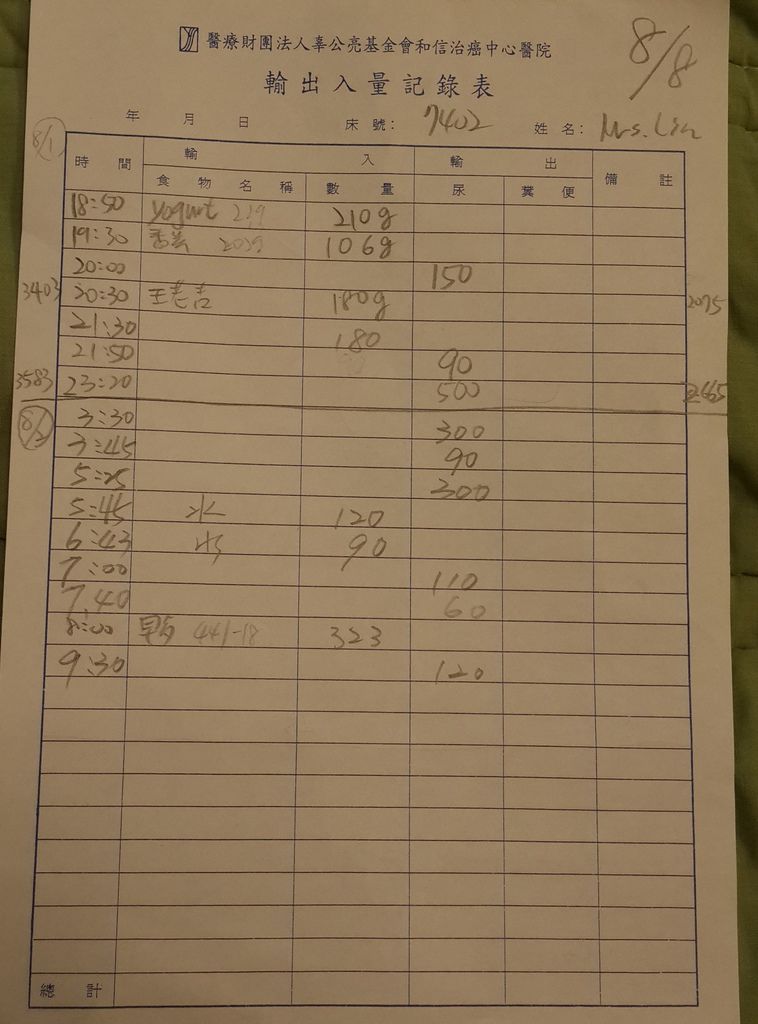 醫療財團法人辜公亮基金會和信治癌中心醫院
8/8
輸出入量記錄表
年 月 日 床號: 7402 姓名: Mrs. Lin
8/1
時間 輸入 輸出 備註
食物名稱 數量 尿 糞便
18:50 yogurt 210g
19:30 106g
20:00 150
3403 20:30 王老吉 180g 2075
21:30 180
21:50 90
3583 23:20 500 2665
8/2 3:30 300
3:45 90
5:25 300
5:45 水 120
6:43 水 90
7:00 110
7:40 60
8:00 早 441-18 323
9:30 120
總計